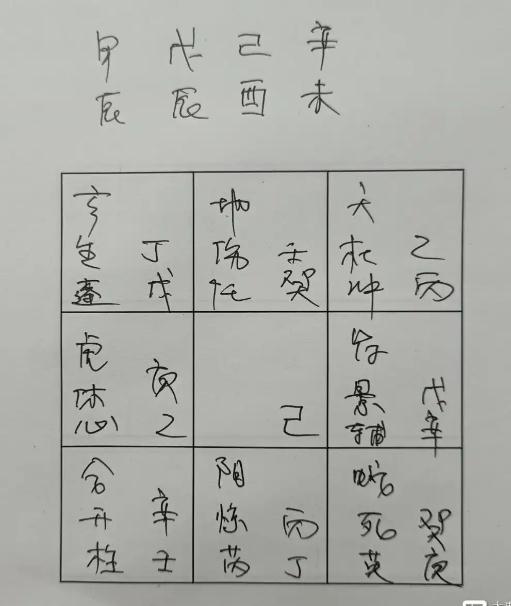 甲 戊 己 辛
辰 辰 酉 未
玄 地 天
生 丁 伤 壬 杜 乙
蓬 戊 任 癸 冲 丙
虎 符
休 庚 景 戊
心 乙 己 辅 辛
合 阴 蛇
开 辛 惊 丙 死 癸
柱 壬 芮 丁 英 庚